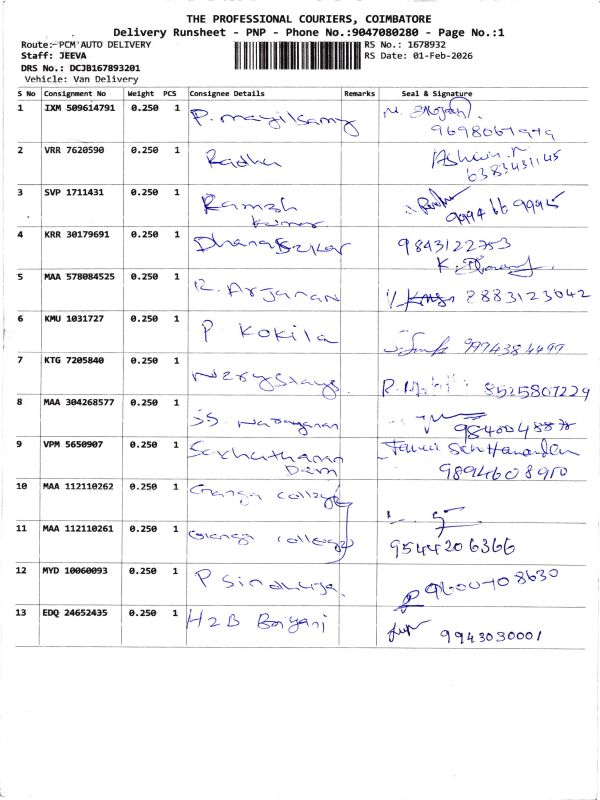 THE PROFESSIONAL COURIERS, COIMBATORE
Delivery Runsheet - PNP - Phone No.:9047080280 - Page No.:1
Route:- PCM AUTO DELIVERY
RS No.: 1678932
Staff: JEEVA
RS Date: 01-Feb-2026
DRS No.: DCJB167893201
Vehicle: Van Delivery
S No Consignment No Weight PCS Consignee Details Remarks Seal & Signature
1 IXM 509614791 0.250 1 P. mayilsamy
2 VRR 7620590 0.250 1 Radha Ashwin
6383431145
3 SVP 1711431 0.250 1 Ramesh
Kumar
4 KRR 30179691 0.250 1 Dhanasekar 9843122753
5 MAA 578084525 0.250 1 R. Arjunan 8883123042
6 KMU 1031727 0.250 1 P Kokila 9994384499
7 KTG 7205840 0.250 1 8525807229
8 MAA 304268577 0.250 1 SS. Narayanan
9 VPM 5650907 0.250 1
9894608910
10 MAA 112110262 0.250 1 Ganga college
11 MAA 112110261 0.250 1 Ganga college 9544206366
12 MYD 10060093 0.250 1 P Sindhuja. 9600708630
13 EDQ 24652435 0.250 1 H2B Boiyani 9943030001